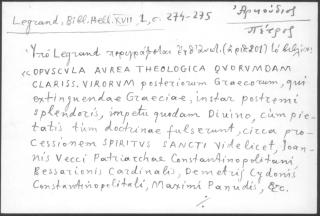 Legrand, Bibl. Hell. XVII, 1, σ. 274-275
Ἀρκούδιος
Πέτρος
Ὑπὸ Legrand περιγράφεται ἐν
«OPVSCVLA AVREA THEOLOGICA QVORVMDAM
CLARISS. VIRORVM posteriorum Graecorum, qui
extinguendae Graeciae, instar postremi
splendoris, impetu quodam Divino, cùm pie-
tatis tùm doctrinae fulserunt, circa pro-
cessionem SPIRITVS SANCTI Videlicet, Joan-
nis Vecci Patriarchae Constantinopolitani
Bessarionis Cardinalis, Demetrij Cydonis
Constantinopolitali, Maximi Panudis, &c.
./.